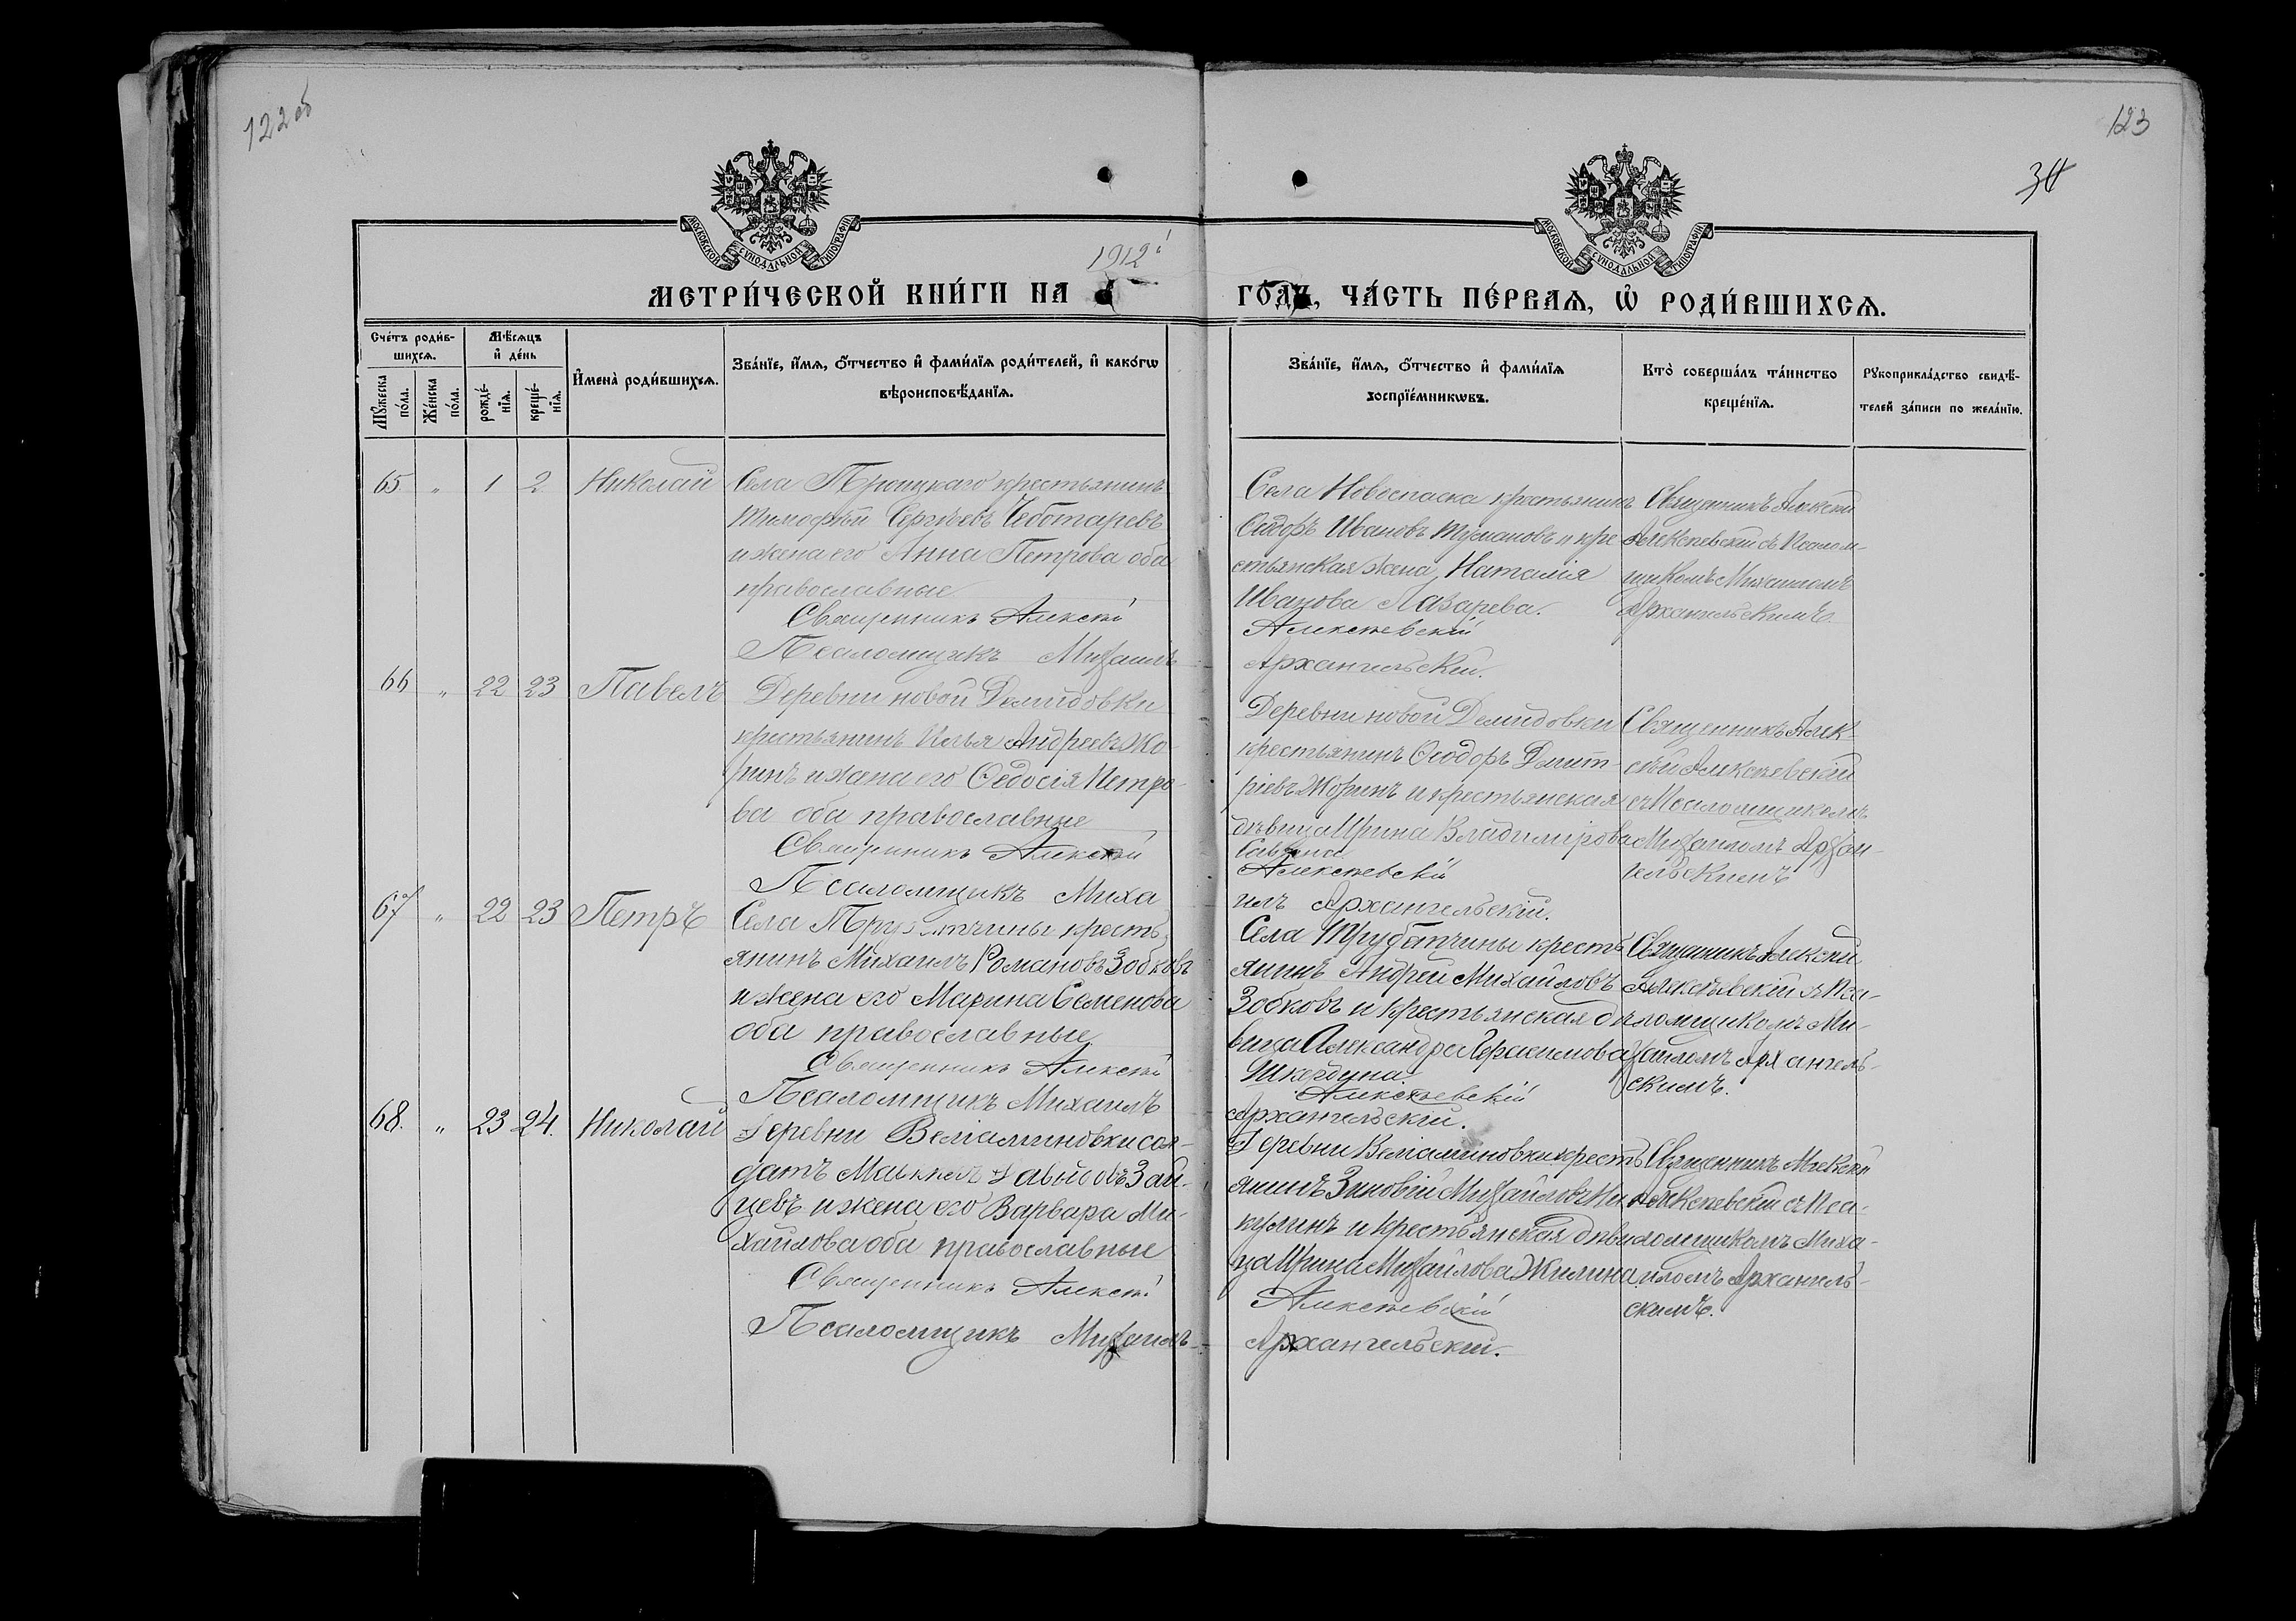 122об
123
30
МОСКОВСКОЙ СѴНОДАЛЬНОЙ ТИПОГРАФІИ
МОСКОВСКОЙ СѴНОДАЛЬНОЙ ТИПОГРАФІИ
1912
МЕТРИ́ЧЕСКОЙ КНИ́ГИ НА
ГО́ДЪ, ЧА́СТЬ ПЕ́РВАѦ, Ѡ҆ РОДИ́ВШИХСѦ.
Сче́тъ роди́в-
шихсѧ.
Мꙋ́жеска по́ла.
Же́нска по́ла.
Мѣ́сѧцъ
и҆ де́нь
рожде́-
нїѧ.
креще́-
нїѧ.
И҆мена̀ роди́вшихсѧ.
Зва́нїе, и҆́мѧ, ѻ҆́тчество и҆ фами́лїѧ роди́телей, и҆ како́гѡ
вѣроисповѣ́данїѧ.
Зва́нїе, и҆́мѧ, ѻ҆́тчество и҆ фами́лїѧ
воспрїе́мникѡвъ.
Кто̀ соверша́лъ та́инство
креще́нїѧ.
Рꙋкоприкла́дство свидѣ́-
телей за́писи по жела́нїю.
65 " 1 2 Николай
Села Троицкаго крестьянинъ
Тимофей Сергѣевъ Чеботаревъ
и жена его Анна Петрова оба
православные
Священникъ Алексѣй
Псаломщикъ Михаилъ
Села Новоспаска крестьянинъ
Сидоръ Ивановъ Тумановъ и кре
стьянская жена Наталія
Иванова Лазарева.
Алексѣевскій
Архангельскій.
Священникъ Алексѣй
Алексѣевскій съ Псалом-
щикомъ Михаиломъ
Архангельскимъ.
66 " 22 23 Павелъ
Деревни новой Демидовки
крестьянинъ Илья Андреевъ Жо-
ринъ и жена его Ѳедосія Петро-
ва оба православные
Священникъ Алексѣй
Псаломщикъ Миха
Деревни новой Демидовки
крестьянинъ Ѳеодоръ Дмит-
ріевъ Жоринъ и крестьянская
дѣвица Ирина Владимірова
Алексѣевскій
илъ Архангельскій.
Священникъ Алек-
сѣй Алексѣевскій
съ Псаломщикомъ
Михаиломъ Архан-
гельскимъ
67 " 22 23 Петръ
Села Трубетчины кресть-
янинъ Михаилъ Романовъ Зобковъ
и жена его Марина Семенова
оба православные
Священникъ Алексѣй
Псаломщикъ Михаилъ
Села Трубетчины кресть
янинъ Андрей Михайловъ
Зобковъ и крестьянская дѣ
вица Александра Герасимова
Алексѣевскій
Архангельскій.
Священникъ Алексѣй
Алексѣевскій съ Пса-
ломщикомъ Ми-
хаиломъ Архангель-
скимъ.
68. " 23 24. Николай
Деревни Веліаминовки сол-
датъ Давыдовъ Зай-
цевъ и жена его Варвара Ми-
хайлова оба православные
Священникъ Алексѣй
Псаломщикъ Михаилъ
Деревни Веліаминовки кресть
янинъ Зиновій Михайловъ Ни
кулинъ и крестьянская дѣви
ца Ирина Михайлова Жилина
Алексѣевскій
Архангельскій.
Священникъ Алексѣй
Алексѣевскій съ Пса-
ломщикомъ Миха-
иломъ Архангель-
скимъ.